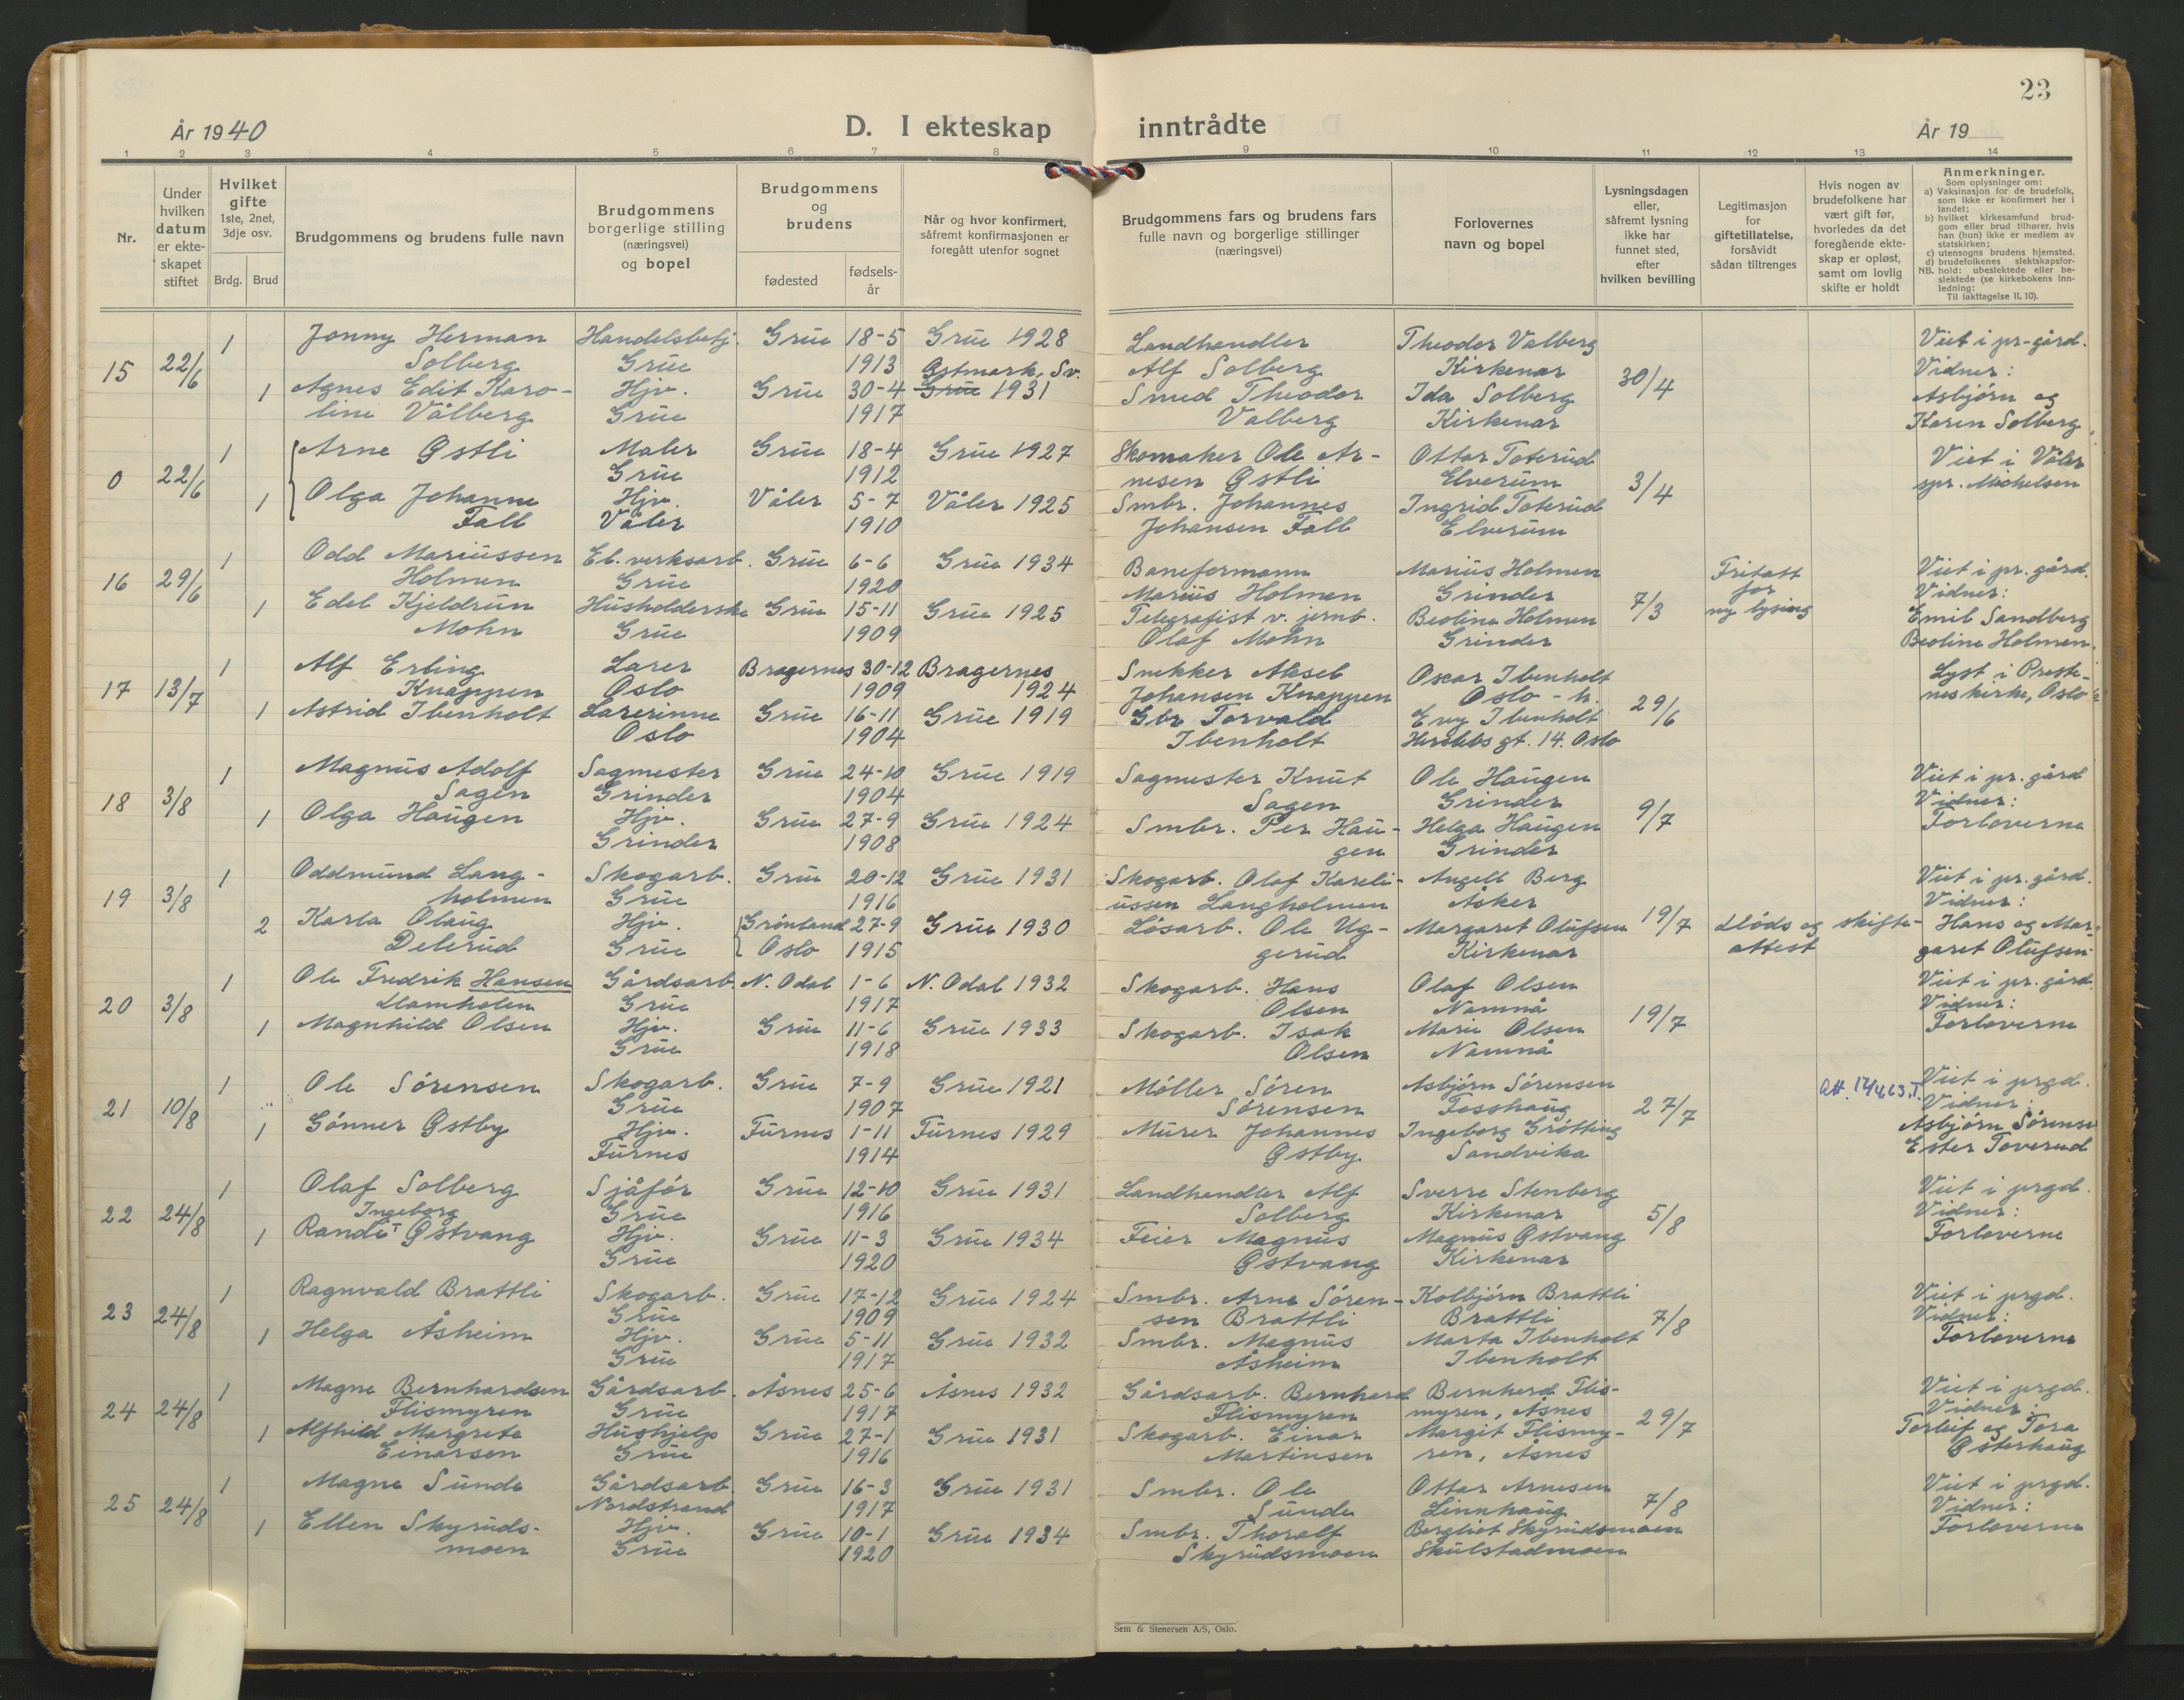 23
År 1940
D. I ekteskap inntrådte
År 19
1 2 3 4 5 6 7 8 9 10 11 12 13 14
Nr.
Under hvilken datum er ekte-skapet stiftet
Hvilket gifte 1ste, 2net, 3dje osv.
Brdg. Brud
Brudgommens og brudens fulle navn
Brudgommens borgerlige stilling (næringsvei) og bopel
Brudgommens og brudens
fødested
fødsels-år
Når og hvor konfirmert, såfremt konfirmasjonen er foregått utenfor sognet
Brudgommens fars og brudens fars fulle navn og borgerlige stillinger (næringsvei)
Forlovernes navn og bopel
Lysningsdagen eller, såfremt lysning ikke har funnet sted, efter hvilken bevilling
Legitimasjon for giftetillatelse, forsåvidt sådan tiltrenges
Hvis nogen av brudefolkene har vært gift før, hvorledes da det foregående ekte-skap er opløst, samt om lovlig skifte er holdt
Anmerkninger.
Som oplysninger om:
a) Vaksinasjon for de brudefolk, som ikke er konfirmert her i landet;
b) hvilket kirkesamfund brud-gom eller brud tilhører, hvis han (hun) ikke er medlem av statskirken;
c) utensogns brudens hjemsted.
d) brudefolkenes slektskapsfor-hold: ubeslektede eller be-slektede (se kirkebokens Inn-ledning:
NB.
Til iakttagelse II. 10).
1 Jonny Herman Handelsbetj. Grue 18-5 Grue 1928 Landhandler Theodor Valberg Viet i pr-gård.
15 22/6 Solberg Grue 1913 Østmark, Sv. Alf Solberg Kirkenær 30/4 Vidner:
1 Agnes Edit Karo- Hjv. Grue 30-4 Grue 1931 Smed Theodor Ida Solberg Asbjørn og
line Vålberg Grue 1917 Valberg Kirkenær Karen Solberg.
1 Arne Østli Maler Grue 18-4 Grue 1927 Skomaker Ole Ar- Ottar Toterud Viet i Våler
0 22/6 Grue 1912 nesen Østli Elverum 3/4 spr. Michelsen
1 Olga Johanne Hjv. Våler 5-7 Våler 1925 Smbr. Johannes Ingrid Toterud
Fall Våler 1910 Johansen Fall Elverum
1 Odd Mariussen El. verksarb. Grue 6-6 Grue 1934 Baneformann Marius Holmen Fritatt Viet i pr. gård.
16 29/6 Holmen Grue 1920 Marius Holmen Grinder 7/3 for Vidner:
1 Edel Kjeldrun Husholderske Grue 15-11 Grue 1925 Telegrafist v. jernb. Beoline Holmen ny lysing Emil Sandberg
Mohn Grue 1909 Olaf Mohn Grinder Beoline Holmen.
1 Alf Erling Lærer Bragernes 30-12 Bragernes Snekker Aksel Oscar Ibenholt Lyst i Preste-
17 13/7 Knappen Oslo 1909 1924 Johansen Knappen Oslo - h. 29/6 nes kirke, Oslo
1 Astrid Ibenholt Lærerinne Grue 16-11 Grue 1919 Gbr Torvald Evy Ibenholt
Oslo 1904 Ibenholt Herslebs gt. 14. Oslo
1 Magnus Adolf Sagmester Grue 24-10 Grue 1919 Sagmester Knut Ole Haugen Viet i pr. gård
18 3/8 Sagen Grinder 1904 Sagen Grinder 9/7 Vidner:
1 Olga Haugen Hjv. Grue 27-9 Grue 1924 Smbr. Per Hau- Helga Haugen Forloverne
Grinder 1908 gen Grinder
1 Oddmund Lang- Skogarb. Grue 20-12 Grue 1931 Skogarb. Olaf Kareli- Angell Berg Viet i pr. gård.
19 3/8 holmen Grue 1916 ussen Langholmen Asker Vidner:
2 Karla Olaug Hjv. Grønland 27-9 Grue 1930 Løsarb. Ole Ug- Margaret Olufsen 19/7 Døds og skifte- Hans og Mar-
Delerud Grue Oslo 1915 gerud Kirkenær attest garet Olufsen
1 Ole Fredrik Hansen Gårdsarb. N. Odal 1-6 N. Odal 1932 Skogarb. Hans Olaf Olsen Viet i pr. gård.
20 3/8 Damholen Grue 1917 Olsen Namnå 19/7 Vidner:
1 Magnhild Olsen Hjv. Grue 11-6 Grue 1933 Skogarb. Isak Marie Olsen Forloverne
Grue 1918 Olsen Namnå
1 Ole Sørensen Skogarb. Grue 7-9 Grue 1921 Møller Søren Asbjørn Sørensen Att. 17/4.63. T. Viet i prgd.
21 10/8 Grue 1907 Sørensen Fosshaug 27/7 Vidner:
1 Gønner Østby Hjv. Furnes 1-11 Furnes 1929 Murer Johannes Ingeborg Grøtting Asbjørn Sørensen
Furnes 1914 Østby Sandvika Ester Toverud
1 Olaf Solberg Sjåfør Grue 12-10 Grue 1931 Landhandler Alf Sverre Stenberg Viet i prgd.
22 24/8 Ingeborg Grue 1916 Solberg Kirkenær 5/8 Vidner:
1 Randi Østvang Hjv. Grue 11-3 Grue 1934 Feier Magnus Magnus Østvang Forloverne
Grue 1920 Østvang Kirkenær
1 Ragnvald Brattli Skogarb. Grue 17-12 Grue 1924 Smbr. Arne Søren- Kolbjørn Brattli Viet i prgd.
23 24/8 Grue 1909 sen Brattli Brattli 7/8 Vidner:
1 Helga Åsheim Hjv. Grue 5-11 Grue 1932 Smbr. Magnus Marta Ibenholt Forloverne
Grue 1917 Åsheim Ibenholt
1 Magne Bernhardsen Gårdsarb. Åsnes 25-6 Åsnes 1932 Gårdsarb. Bernhard Bernhard Flis- Viet i prgd.
24 24/8 Flismyren Grue 1917 Flismyren myren, Åsnes 29/7 Vidner:
1 Alfhild Margrete Hushjelp Grue 27-1 Grue 1931 Skogarb. Einar Margit Flismy- Torleif og Tora
Einarsen Grue 1916 Martinsen ren, Åsnes Østerhaug
1 Magne Sunde Gårdsarb. Grue 16-3 Grue 1931 Smbr. Ole Ottar Arnesen Viet i prgd.
25 24/8 Nordstrand 1917 Sunde Linnhaug 7/8 Vidner:
1 Ellen Skyruds- Hjv. Grue 10-1 Grue 1934 Smbr. Thoralf Bergliot Skyrudsmoen Forloverne
moen Grue 1920 Skyrudsmoen Skulstadmoen
Sem & Stenersen A/S, Oslo.